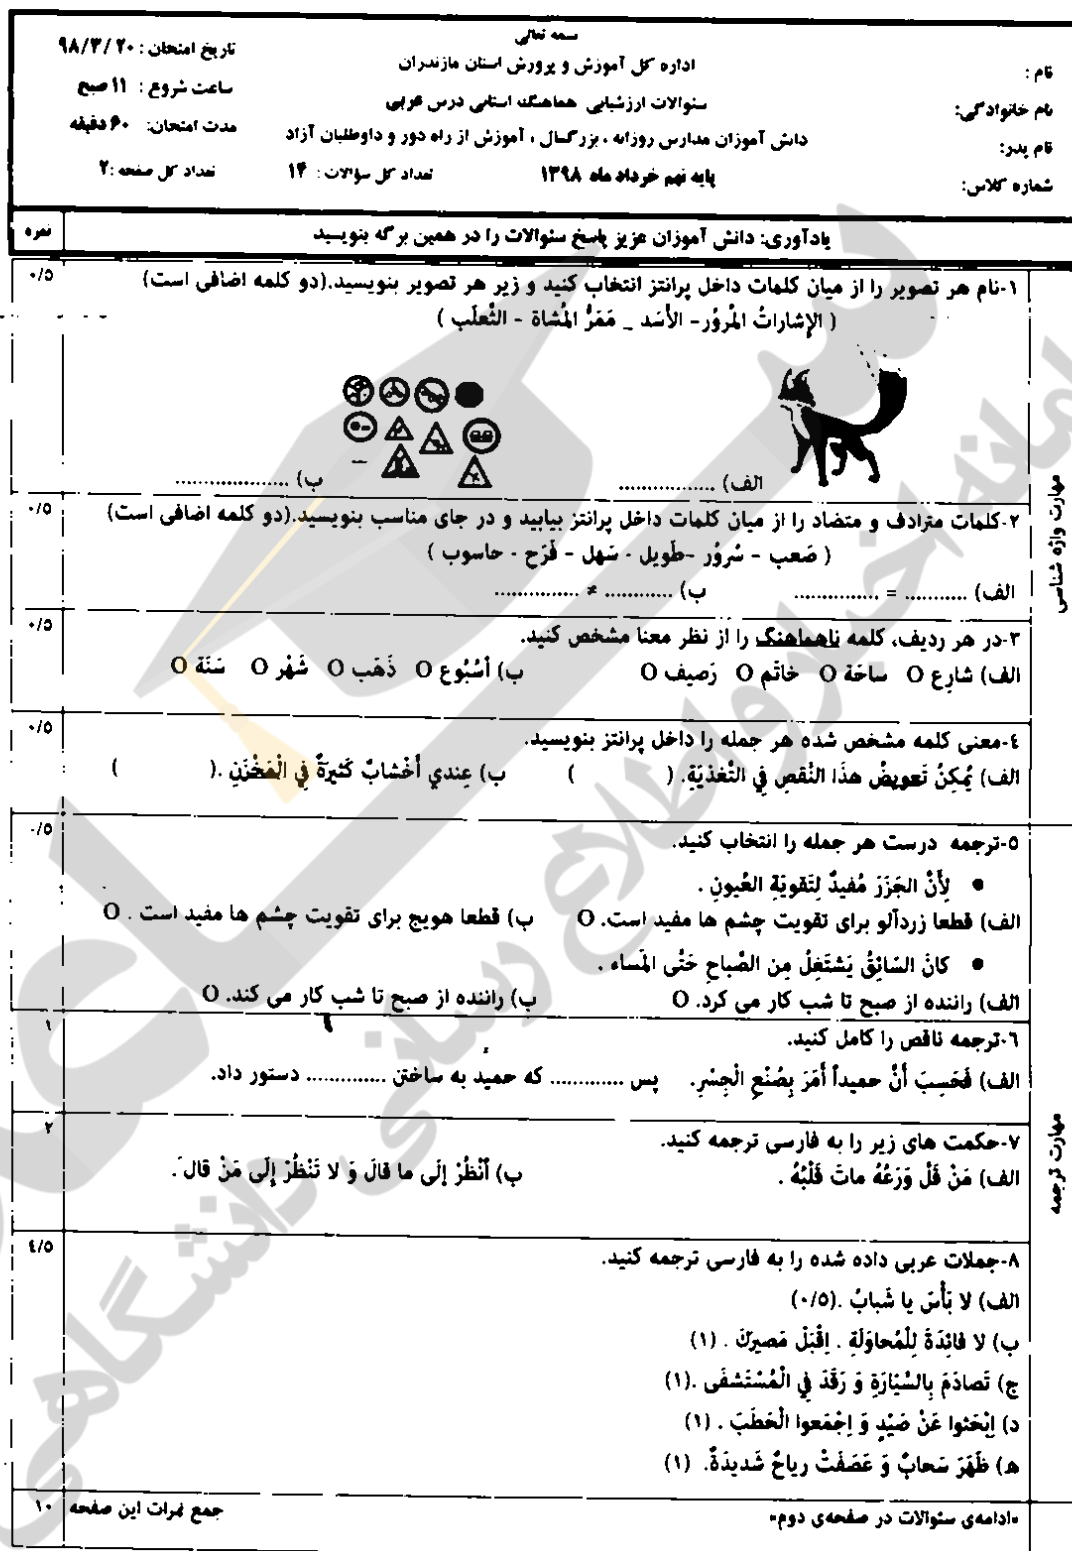 بسمه تعالی
نام :
اداره کل آموزش و پرورش استان مازندران
تاریخ امتحان : ۹۸/۳/۲۰
نام خانوادگی:
سئوالات ارزشیابی هماهنگ استانی درس عربی
ساعت شروع : ۱۱ صبح
نام پدر:
دانش آموزان مدارس روزانه ، بزرگسال ، آموزش از راه دور و داوطلبان آزاد
مدت امتحان: ۶۰ دقیقه
شماره کلاس:
پایه نهم خرداد ماه ۱۳۹۸
تعداد کل سؤالات : ۱۴
تعداد کل صفحه :۲
یادآوری: دانش آموزان عزیز پاسخ سئوالات را در همین برگه بنویسید
نمره
مهارت واژه شناسی
۱-نام هر تصویر را از میان کلمات داخل پرانتز انتخاب کنید و زیر هر تصویر بنویسید.(دو کلمه اضافی است) ۰/۵
( الإشاراتُ المُرورُ- الأَسَد _ مَمَرُّ المُشاة - الثَّعلَب )
الف) ................. ب) ....................
۲-کلمات مترادف و متضاد را از میان کلمات داخل پرانتز بیابید و در جای مناسب بنویسید.(دو کلمه اضافی است) ۰/۵
( صَعب - سُرُور -طَویل - سَهل - فَرَح - حاسوب )
الف) ........... = ............... ب) ............ ≠ ...............
۳-در هر ردیف، کلمه ناهماهنگ را از نظر معنا مشخص کنید. ۰/۵
الف) شارِع O ساحَة O خاتَم O رَصیف O ب) أُسْبُوع O ذَهَب O شَهْر O سَنَة O
٤-معنی کلمه مشخص شده هر جمله را داخل پرانتز بنویسید. ۰/۵
الف) یُمکِنُ تَعویضُ هذَا النَّقصِ فِي التَّغذیَةِ. ( ) ب) عِندي أَخْشابٌ کَثیرَةٌ فِي الْمَخْزَنِ .( )
مهارت ترجمه
۵-ترجمه درست هر جمله را انتخاب کنید. ۰/۵
● لِأَنَّ الجَزَرَ مُفیدٌ لِتَقویَةِ العُیونِ .
الف) قطعا زردآلو برای تقویت چشم ها مفید است. O ب) قطعا هویج برای تقویت چشم ها مفید است . O
● کانَ السّائِقُ یَشتَغِلُ مِن الصَّباحِ حَتَّی المَساء .
الف) راننده از صبح تا شب کار می کرد. O ب) راننده از صبح تا شب کار می کند. O
٦-ترجمه ناقص را کامل کنید. ۱
الف) فَحَسِبَ أَنَّ حمیداً أَمَرَ بِصُنْعِ الْجِسْرِ. پس ............. که حمید به ساختن .............. دستور داد.
۷-حکمت های زیر را به فارسی ترجمه کنید. ۲
الف) مَنْ قَلَّ وَرَعُهُ ماتَ قَلْبُهُ . ب) أُنْظُرْ إلَی ما قالَ وَ لا تَنْظُرْ إِلَی مَنْ قالَ .
۸-جملات عربی داده شده را به فارسی ترجمه کنید. ٤/۵
الف) لا بَأْسَ یا شَبابُ .(۰/۵)
ب) لا فائِدَةَ لِلْمُحاوَلَةِ . اِقْبَلْ مَصیرَكَ . (۱)
ج) تَصادَمَ بِالسَّیّارَةِ وَ رَقَدَ فِي الْمُسْتَشفَی .(۱)
د) اِبْحَثوا عَنْ صَیْدٍ وَ اِجْمَعوا الْحَطَبَ . (۱)
ه) ظَهَرَ سَحابٌ وَ عَصَفَتْ ریاحٌ شَدیدَةٌ. (۱)
«ادامه‌ی سئوالات در صفحه‌ی دوم»
جمع نمرات این صفحه ۱۰